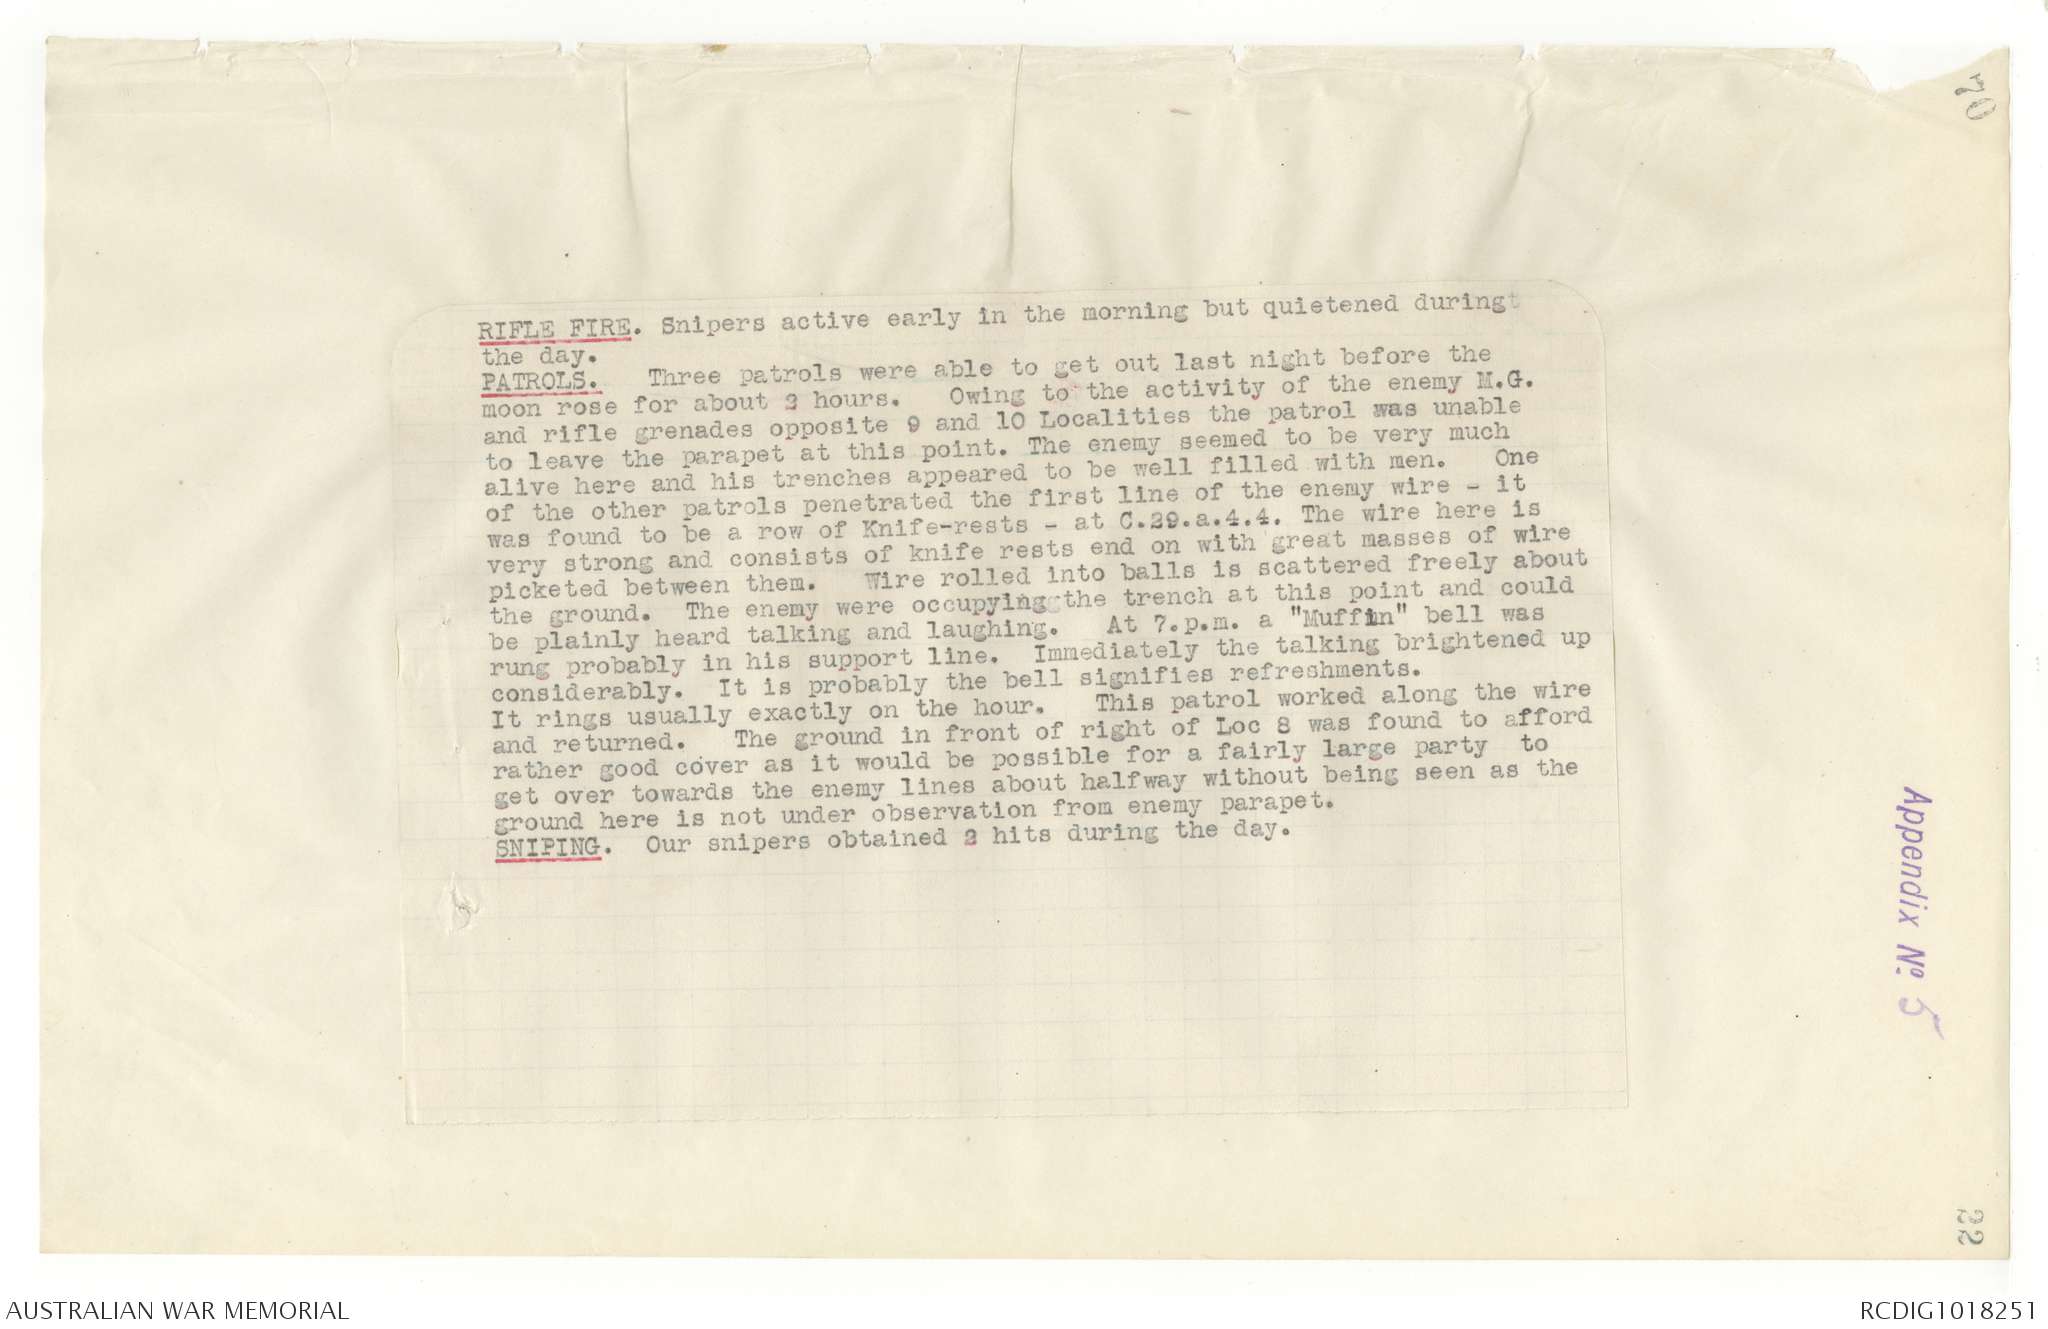 70
RIFLE FIRE. Snipers active early in the morning but quietened duringt
the day.
PATROLS.   Three patrols were able to get out last night before the
moon rose for about 2 hours.   Owing to the activity of the enemy M.G.
and rifle grenades opposite 9 and 10 Localities the patrol was unable
to leave the parapet at this point. The enemy seemed to be very much
alive here and his trenches appeared to be well filled with men.   One
of the other patrols penetrated the first line of the enemy wire - it
was found to be a row of Knife-rests - at C.29.a.4.4. The wire here is
very strong and consists of knife rests end on with great masses of wire
picketed between them.   Wire rolled into balls is scattered freely about
the ground.  The enemy were occupying the trench at this point and could
be plainly heard talking and laughing.   At 7.p.m. a "Muffin" bell was
rung probably in his support line.  Immediately the talking brightened up
considerably.  It is probably the bell signifies refreshments.
It rings usually exactly on the hour.   This patrol worked along the wire
and returned.   The ground in front of right of Loc 8 was found to afford
rather good cover as it would be possible for a fairly large party  to
get over towards the enemy lines about halfway without being seen as the
ground here is not under observation from enemy parapet.
SNIPING.  Our snipers obtained 2 hits during the day.
Appendix No. 5
22
AUSTRALIAN WAR MEMORIAL
RCDIG1018251